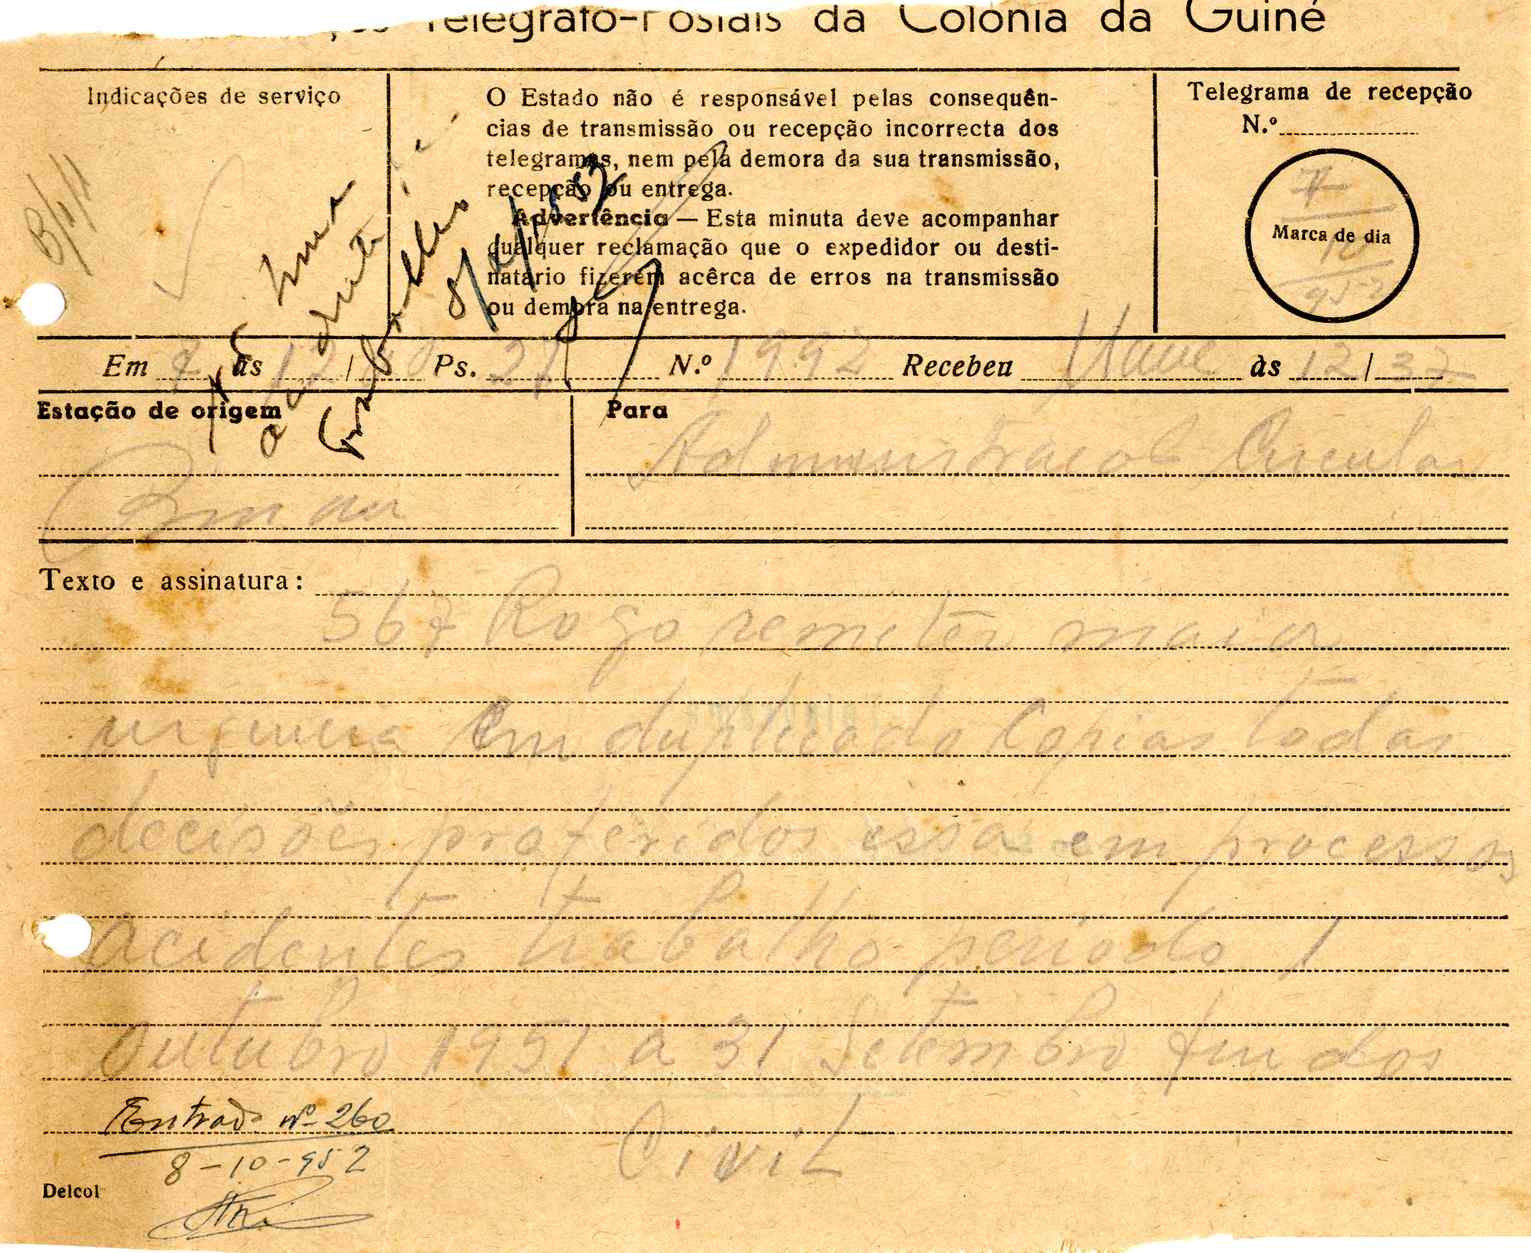 Telegrafo-Postais da Colónia da Guiné
Indicações de serviço
O Estado não é responsável pelas consequên-
cias de transmissão ou recepção incorrecta dos
telegramas, nem pela demora da sua transmissão,
recepção ou entrega.
Advertência — Esta minuta deve acompanhar
qualquer reclamação que o expedidor ou desti-
natário fizerem acêrca de erros na transmissão
ou demora na entrega.
Telegrama de recepção
N.º
7
Marca de dia
10
952
Em 7 às 12 / Ps. 27 N.º 1992 Recebeu às 12 / 37
Estação de origem
Para
Administração Circular
Bissau
Texto e assinatura:
567 Rogo remeter maior
urgencia em duplicado copias todas
decisões proferidos essa em processos
acidentes trabalho periodo 1
outubro 1951 a 31 Setembro findos
Civil
Entrada nº 260
8-10-952
Delcol